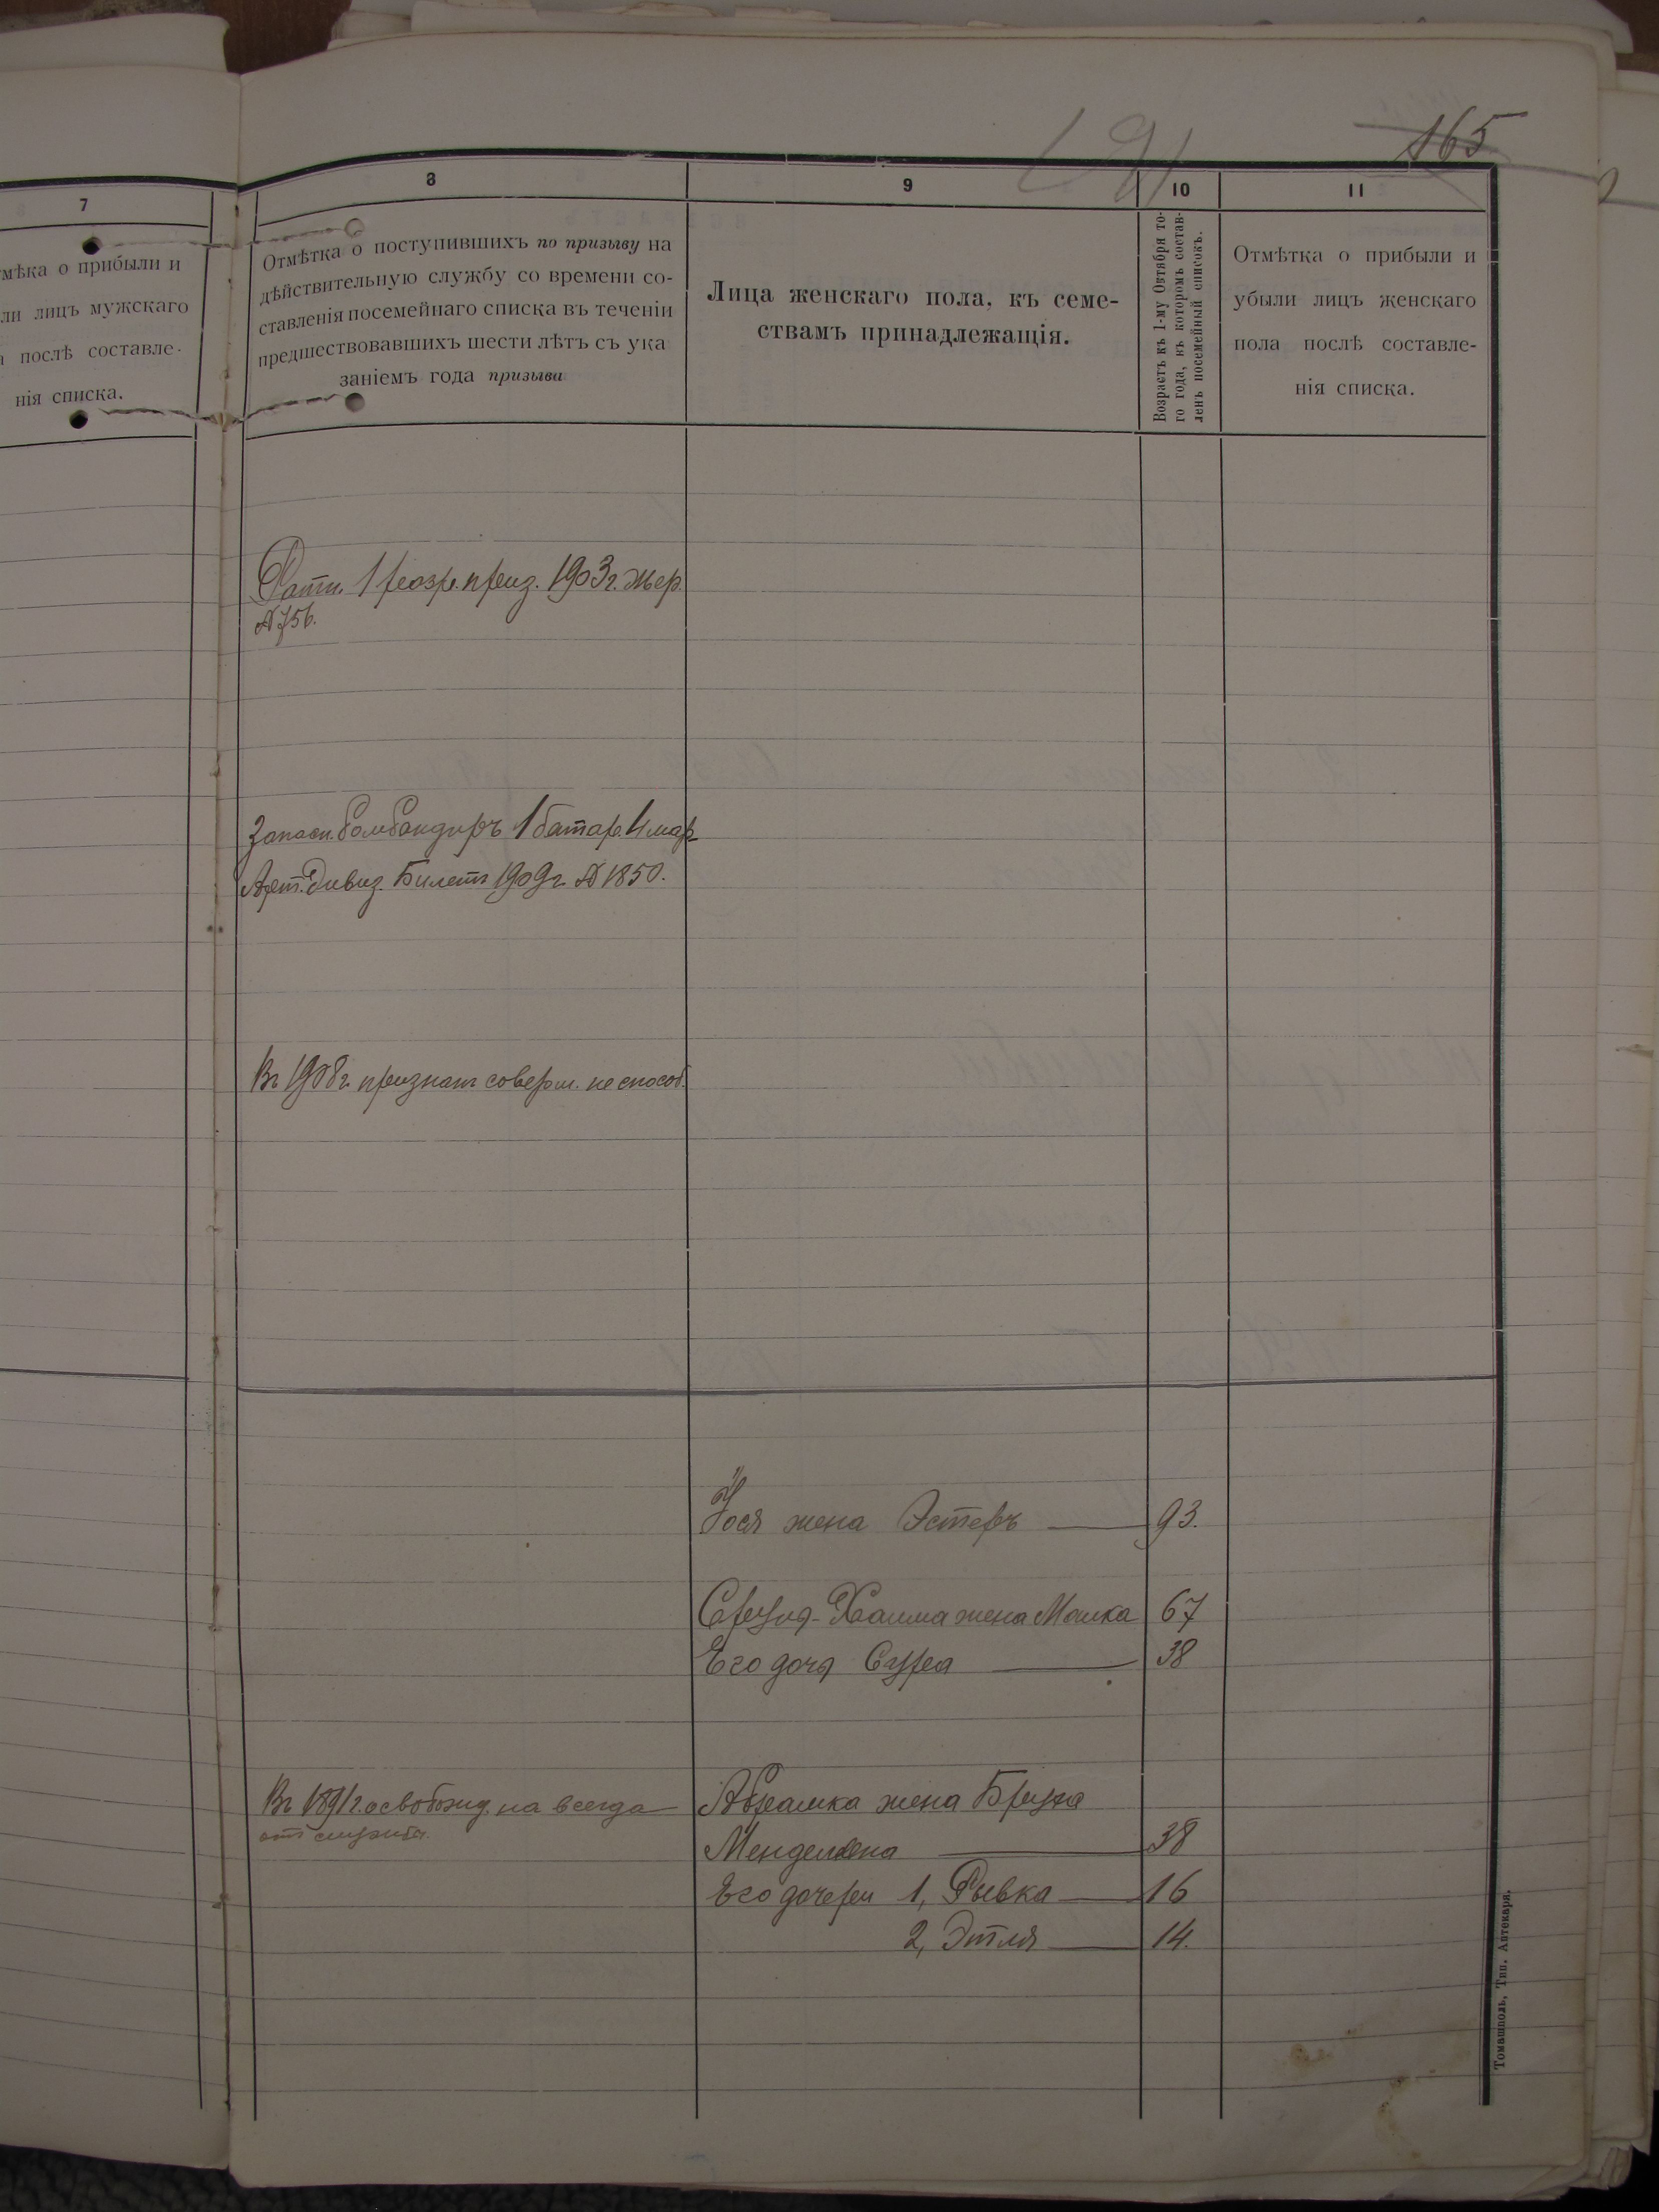 191
165
7
8
9
10
11
мѣка о прибыли и
ли лицъ мужскаго
послѣ составле-
нія списка.
Отмѣтка о поступившихъ по призыву на
дѣйствительную службу со времени со-
ставленія посемейнаго списка въ теченіи
предшествовавшихъ шести лѣтъ съ ука
заніемъ года призыва
Лица женскаго пола, къ семе-
ствамъ принадлежащія.
Возрастъ къ 1-му Октября то-
го года, въ которомъ состав-
ленъ посемейный списокъ.
Отмѣтка о прибыли и
убыли лицъ женскаго
пола послѣ составле-
нія списка.
Ратн. 1 разр. приз. 1903 г. жер.
№ 756.
Запасн. бомбандиръ 1 батар. 4 мар
Арт. дивиз. Билетъ 1909 г. № 1850.
Въ 1908 г. признанъ соверш. не способ.
жена Эстеръ 93.
Сруля-Хаима жена Малка 67
Его дочь Сура 38
Въ 1891 г. освобожд. на всегда
отъ службы.
Абрамка жена Бруха
Менделевна 38
Его дочери 1, Рывка 16
2, Этля 14.
Томашполь, Тип. Аптекаря.